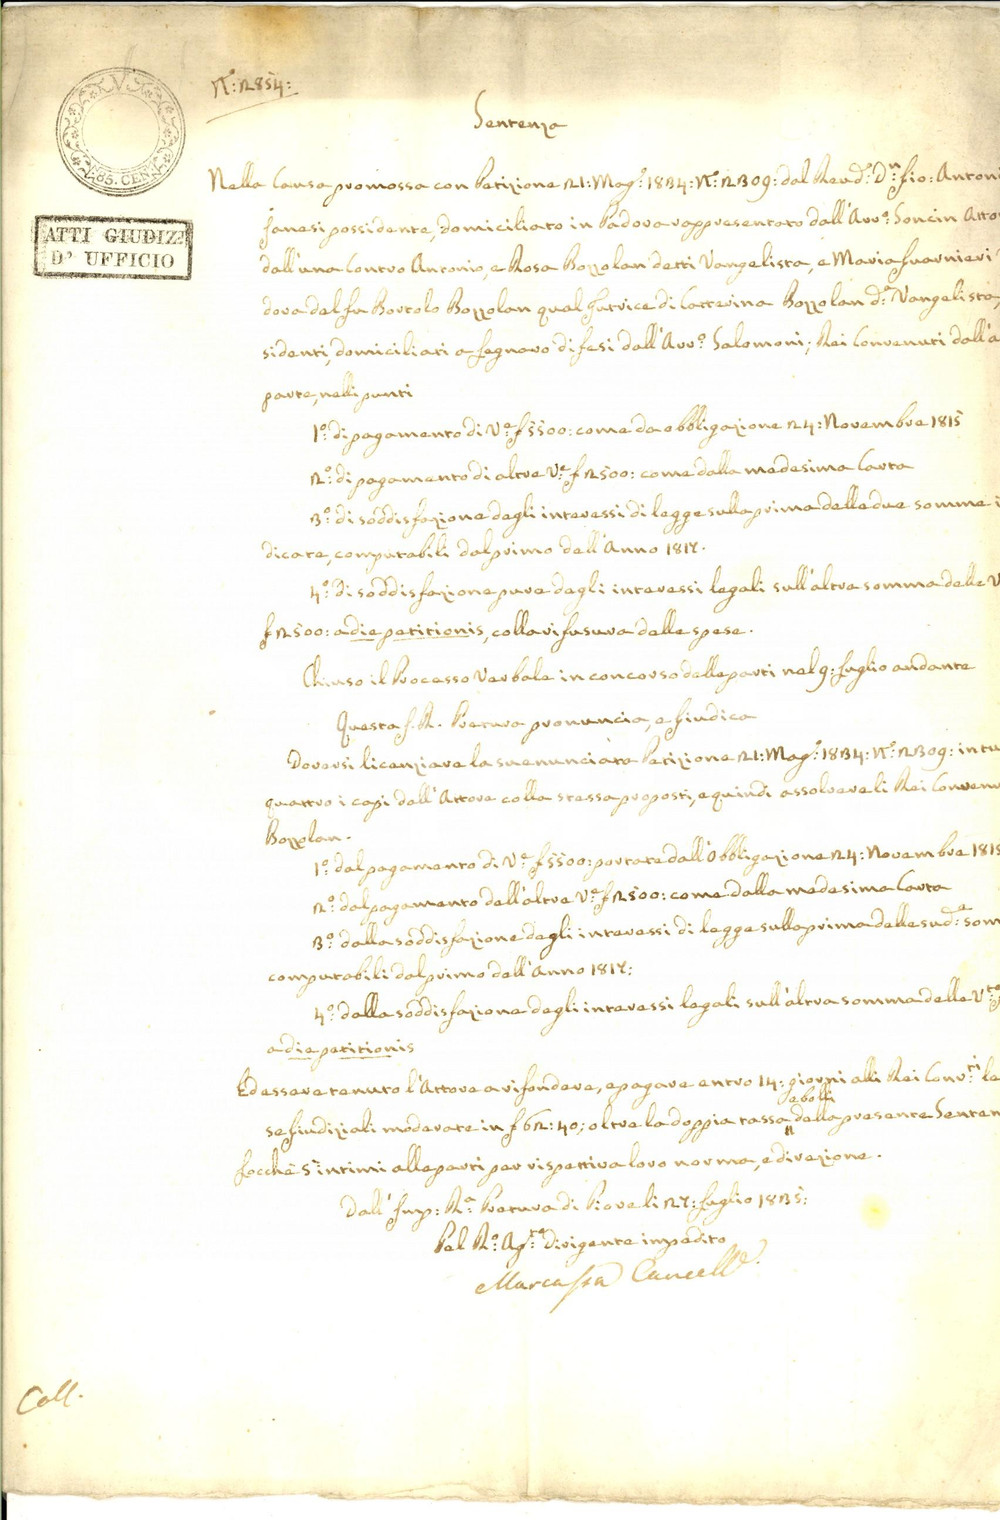 N.º: 2854:
85. CEN.
Sentenza
ATTI GIUDIZ:
D' UFFICIO
Nella Causa promossa con Petizione 21: Mag.º 1834: N.º: 2309: dal Revd.º D.n Gio: Antoni
Fanesi possidente, domiciliato in Padova rappresentato dall'Avv.º Soncin Atto
dall'una Contro Antonio, e Rosa Bozzolan detti Vangelista, e Maria Guarnieri
dova del fu Bortolo Bozzolan qual Tutrice di Catterina Bozzolan d.ª Vangelista,
sidenti, domiciliati a Legnaro difesi dall'Avv.º Salomoni; Rei Convenuti dall'a
parte, nelli punti
1º: di pagamento di V.e £ 5500: come da obbligazione 24: Novembre 1815
2º: di pagamento di altre V.e £ 2500: come dalla medesima Carta
3º: di soddisfazione degli interessi di legge sulla prima delle due somme i
dicate, computabili dal primo dell'Anno 1817.
4º: di soddisfazione pure degli interessi legali sull'altra somma delle V
£ 2500: a die petitionis, colla rifusura delle spese.
Chiuso il Processo Verbale in concorso delle parti nel 9: Luglio andante
Questa I. R. Pretura pronuncia, e Giudica
Doversi licenziare la suenunciata Petizione 21: Mag.º 1834: N.º: 2309: in tu
quattro i capi dall'Attore colla stessa proposti, e quindi assolvere li Rei Conven
Bozzolan.
1º: dal pagamento di V.e £ 5500: portate dall'Obbligazione 24: Novembre 1815
2º: dal pagamento dell'altre V.e £ 2500: come dalla medesima Carta
3º: dalla soddisfazione degli interessi di legge sulla prima delle sud.e som
computabili dal primo dell'Anno 1817:
4º: dalla soddisfazione degli interessi legali sull'altra somma delle V.te
a die petitionis
Ed essere tenuto l'Attore a rifondere, e pagare entro 14: giorni alli Rei Conv.ti le
e bolli
se Giudiziali moderate in £ 62:40; oltre la doppia tassa della presente Senten
Locchè s'intimi alle parti per rispettiva loro norma, e direzione.
Dall'Imp: R.ª Pretura di Piove li 27: Luglio 1835:
Pel R.º Ag.te dirigente impedito
Cancell.e
Coll.